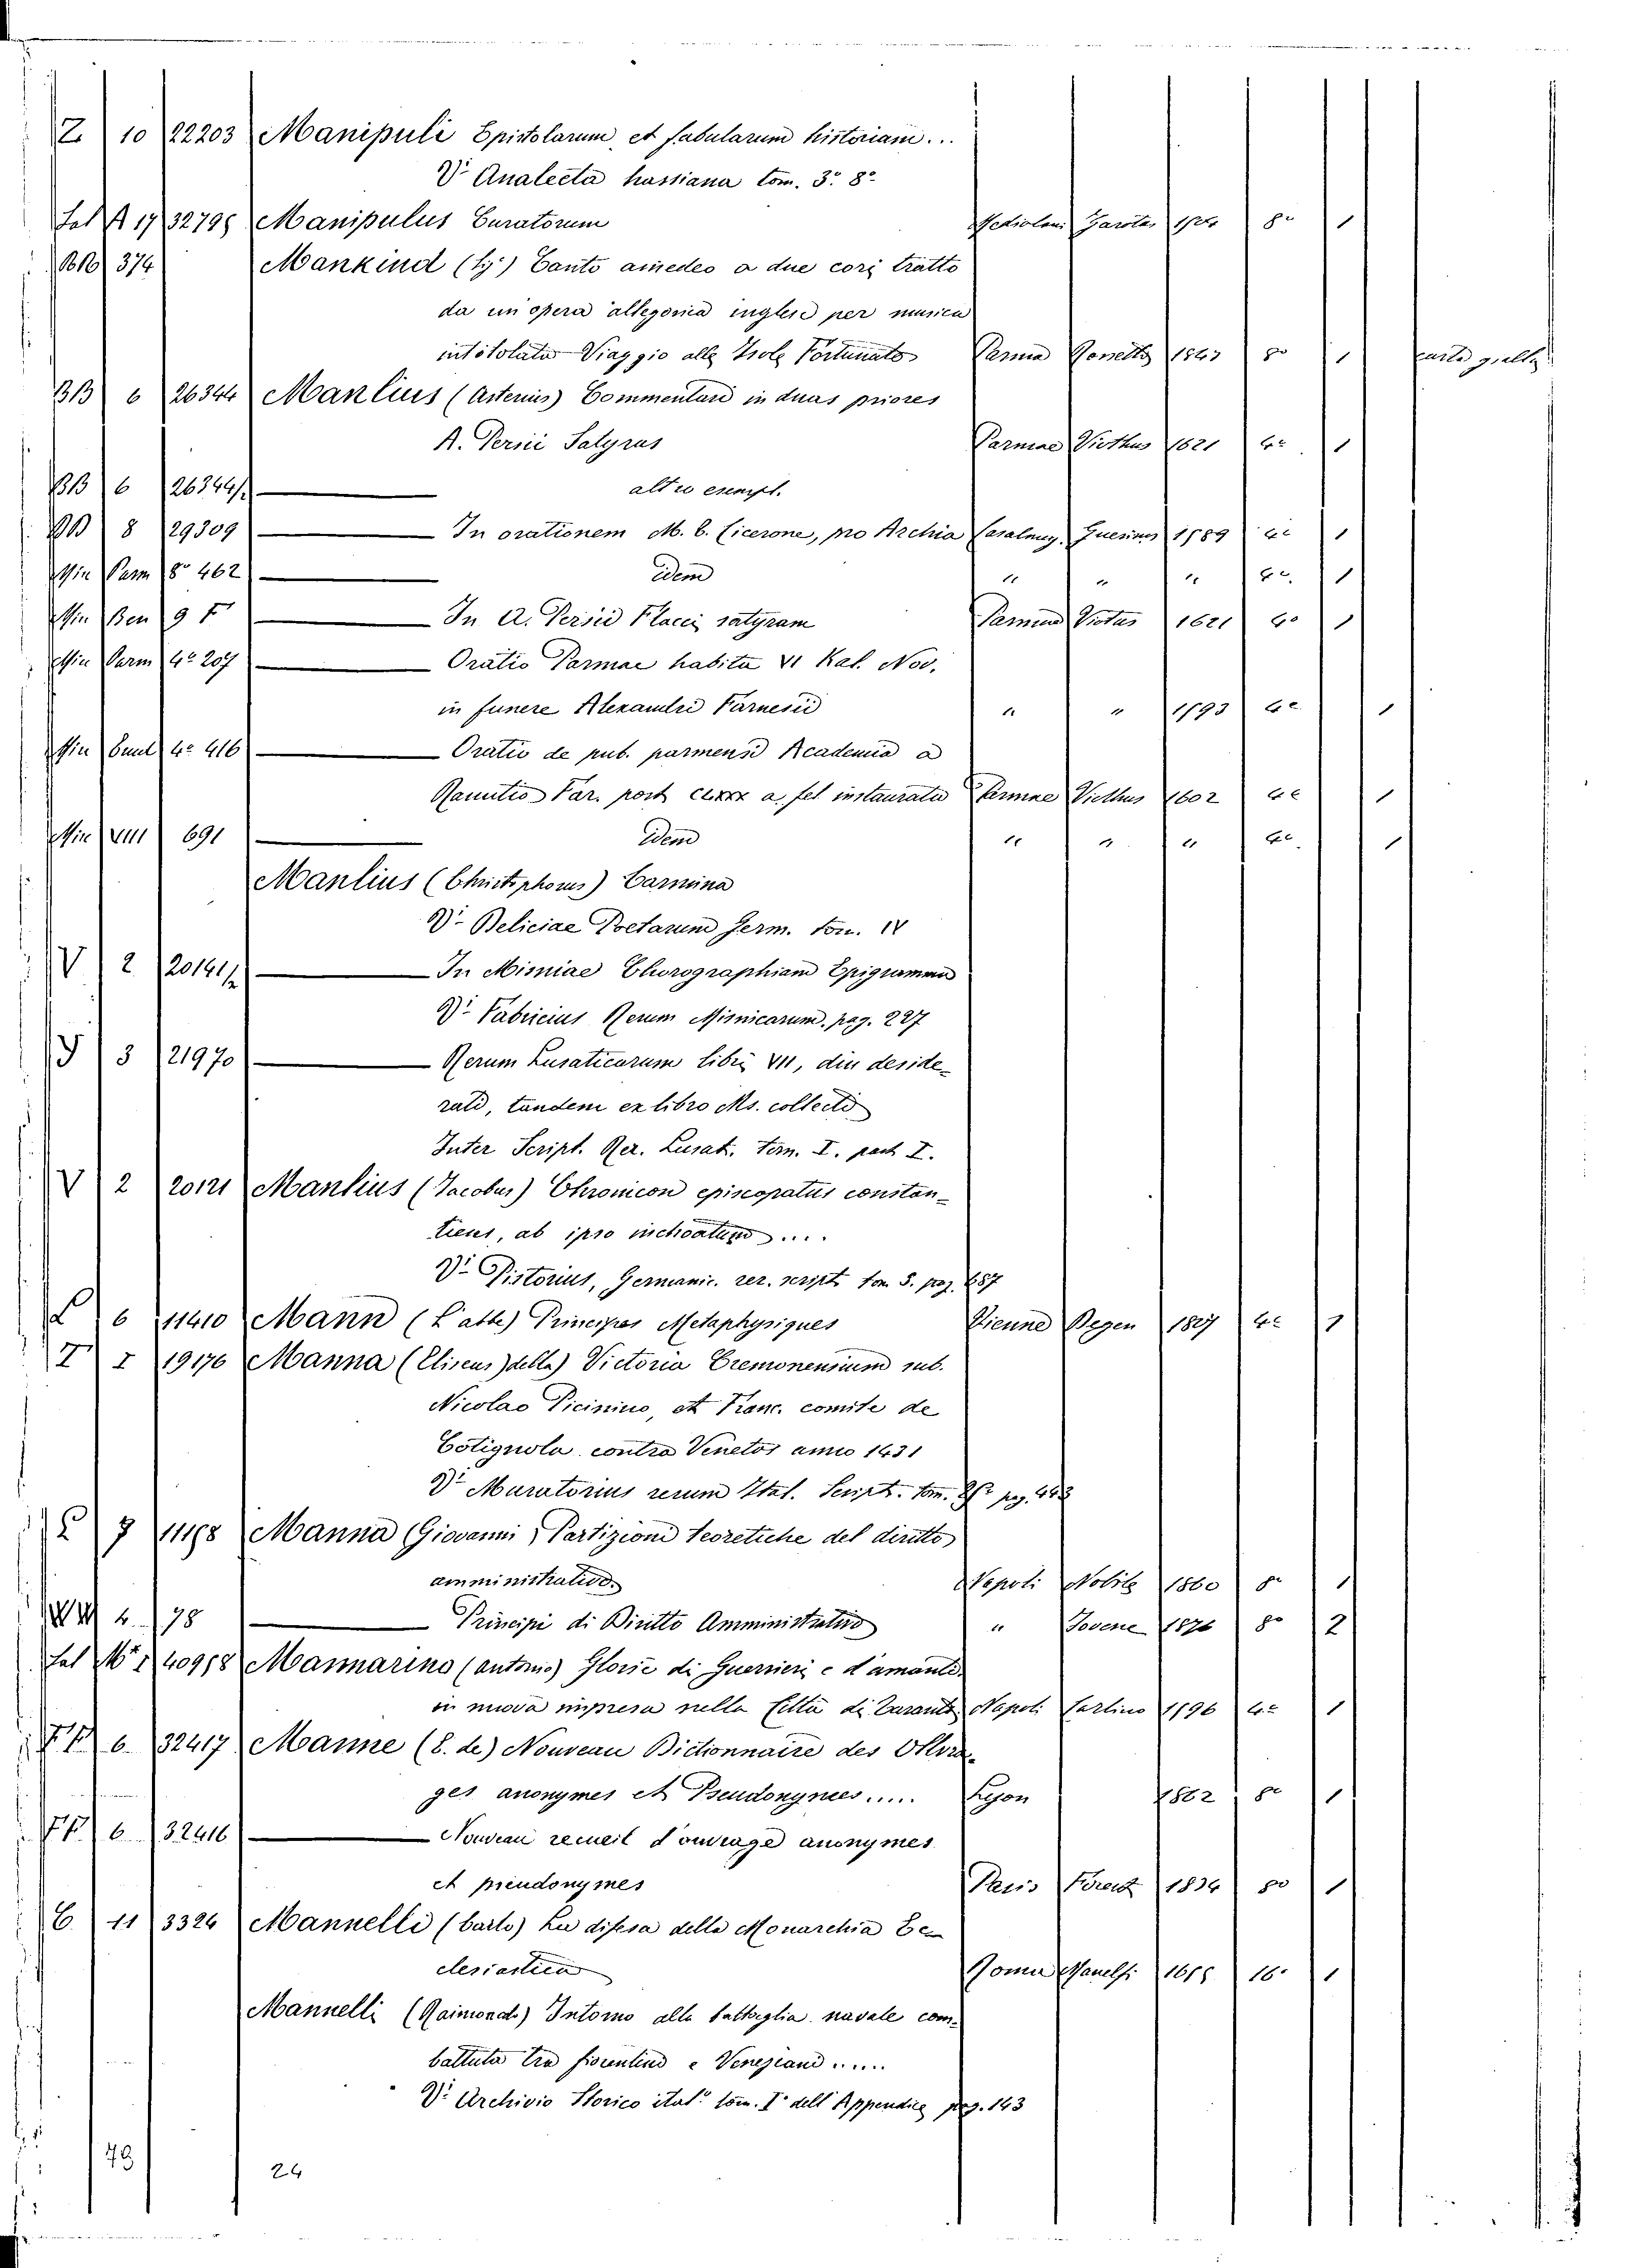 Z. 10 22203 Manipuli Epistolarum, et fabularum historiam...
V. Analecta hassiana tom. 3.º 8.º
Sal A 17 32795 Manipulus Curatorum Mediolani 8º 1
374 Mankind (ly:) Canto amedeo a due cori tratto
da un opera allegorica inglese per musica
intitolata Viaggio alle Isole Fortunate Parma Donetti 1843 8º 1 carta gialla
BB 6 26344 Manlius (Asterius) Commentari in duas priores
A. Persii Satyras Parmae Viothus 1621 4º 1
BB 6 26344/2 altro esempl.
8 29309 In orationem M. b. Cicerone, pro Archia Casalmag. Guerinus 1589 4º 1
Min Parm 8º 462 idem " " " 4º. 1
Min Ben 9 In A. Persii Flacci satyram Viotus 1621 4º 1
Min Parm 4º 207 Oratio Parmae habita VI Kal. Nov.
in funere Alexandri Farnesii " " 1593 4º 1
Min 4º 416 Oratio de pub. parmensi Academia a
Ranutio Far. post a. fel. instaurata Parmae Viothus 1602 4º 1
Min VIII 691 idem " " " 4º. 1
Manlius (Christophorus) Carmina
V. Deliciae Poetarum Germ. tom. IV
V 2 20141/2 In Misniae Chorographiam Epigramma
V. Fabricius Rerum Misnicarum. pag. 227
3 21970 Rerum Lusaticarum libri VII, diu deside-
rati, tandem ex libro Ms. collecti
Inter Script. Rer. Lusat. tom. I. part I.
V 2 20121 Manlius (Jacobus) Chronicon episcopatus constan-
tiens, ab ipso inchoatum ....
V. Pistorius, Germanic. rer. script. tom 3. pag. 687
L 6 11410 Mann (L'abbe) Principes Metaphysiques Vienne Degen 1807 4º 1
T I 19176 Manna (Eliseus) della) Victoria Cremonensium sub.
Nicolao Picinino, et Franc. comite de
Cotignola contra Venetos anno 1431
V. Muratorius rerum Ital. Script. tom. pag. 443
7 11198 Manna (Giovanni) Partizioni teoretiche del diritto
amministrativo. Napoli Nobile 1860 8º 1
4 78 Principi di Diritto Amministrativo " Jovene 1876 8º 2
Sal M 1 40958 Mannarino (antonio) Glorie di Guerrieri e d'amanti
in nuova impresa nella Città di Taranto Napoli Carlino 1596 4º 1
FF 6 32417 Manne (E. de) Nouveau Dictionnaire des Ouvra-
ges anonymes et Pseudonymes..... Lyon 1862 8º 1
FF 6 32416 Nouveau recueil d'ouvrage anonymes
et pseudonymes Paris 1834 8º 1
C. 11 3324 Mannelli (carlo) La difesa della Monarchia Ec-
clesiastica Roma Manelfi 1655 16º 1
Mannelli (Raimondo) Intorno alla battaglia navale com-
battuta tra fiorentini e Veneziani ....
V. Archivio Storico ital.º tom. Iº dell'Appendice pag. 143
79 24